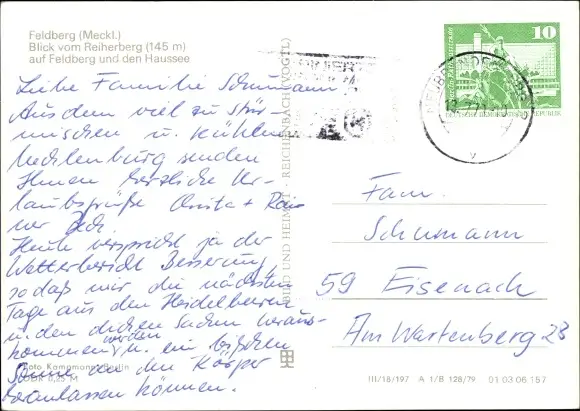 Feldberg (Meckl.)
Blick vom Reiherberg (145 m)
auf Feldberg und den Haussee
Liebe Familie Schumann!
Aus dem viel zu stür-
mischen u. kühlen
Mecklenburg senden
Ihnen herzliche Ur-
laubsgrüße Anita + Rai-
ner
Heute verspricht ja der
Wetterbericht Besserung,
so daß wir die nächsten
Tage aus den Heidelbeeren
u. den dicken Sachen heraus-
kommen werden u. ein bißchen
Sonne an den Körper
ranlassen können.
Foto Kampmann, Berlin
0,25 M
BILD UND HEIMAT · REICHENBACH (VOGTL)
10
DEUTSCHE DEMOKRATISCHE REPUBLIK
Fam.
Schumann
59 Eisenach
Am Wartenberg 23
III/18/197 A 1/B 128/79 01 03 06 157